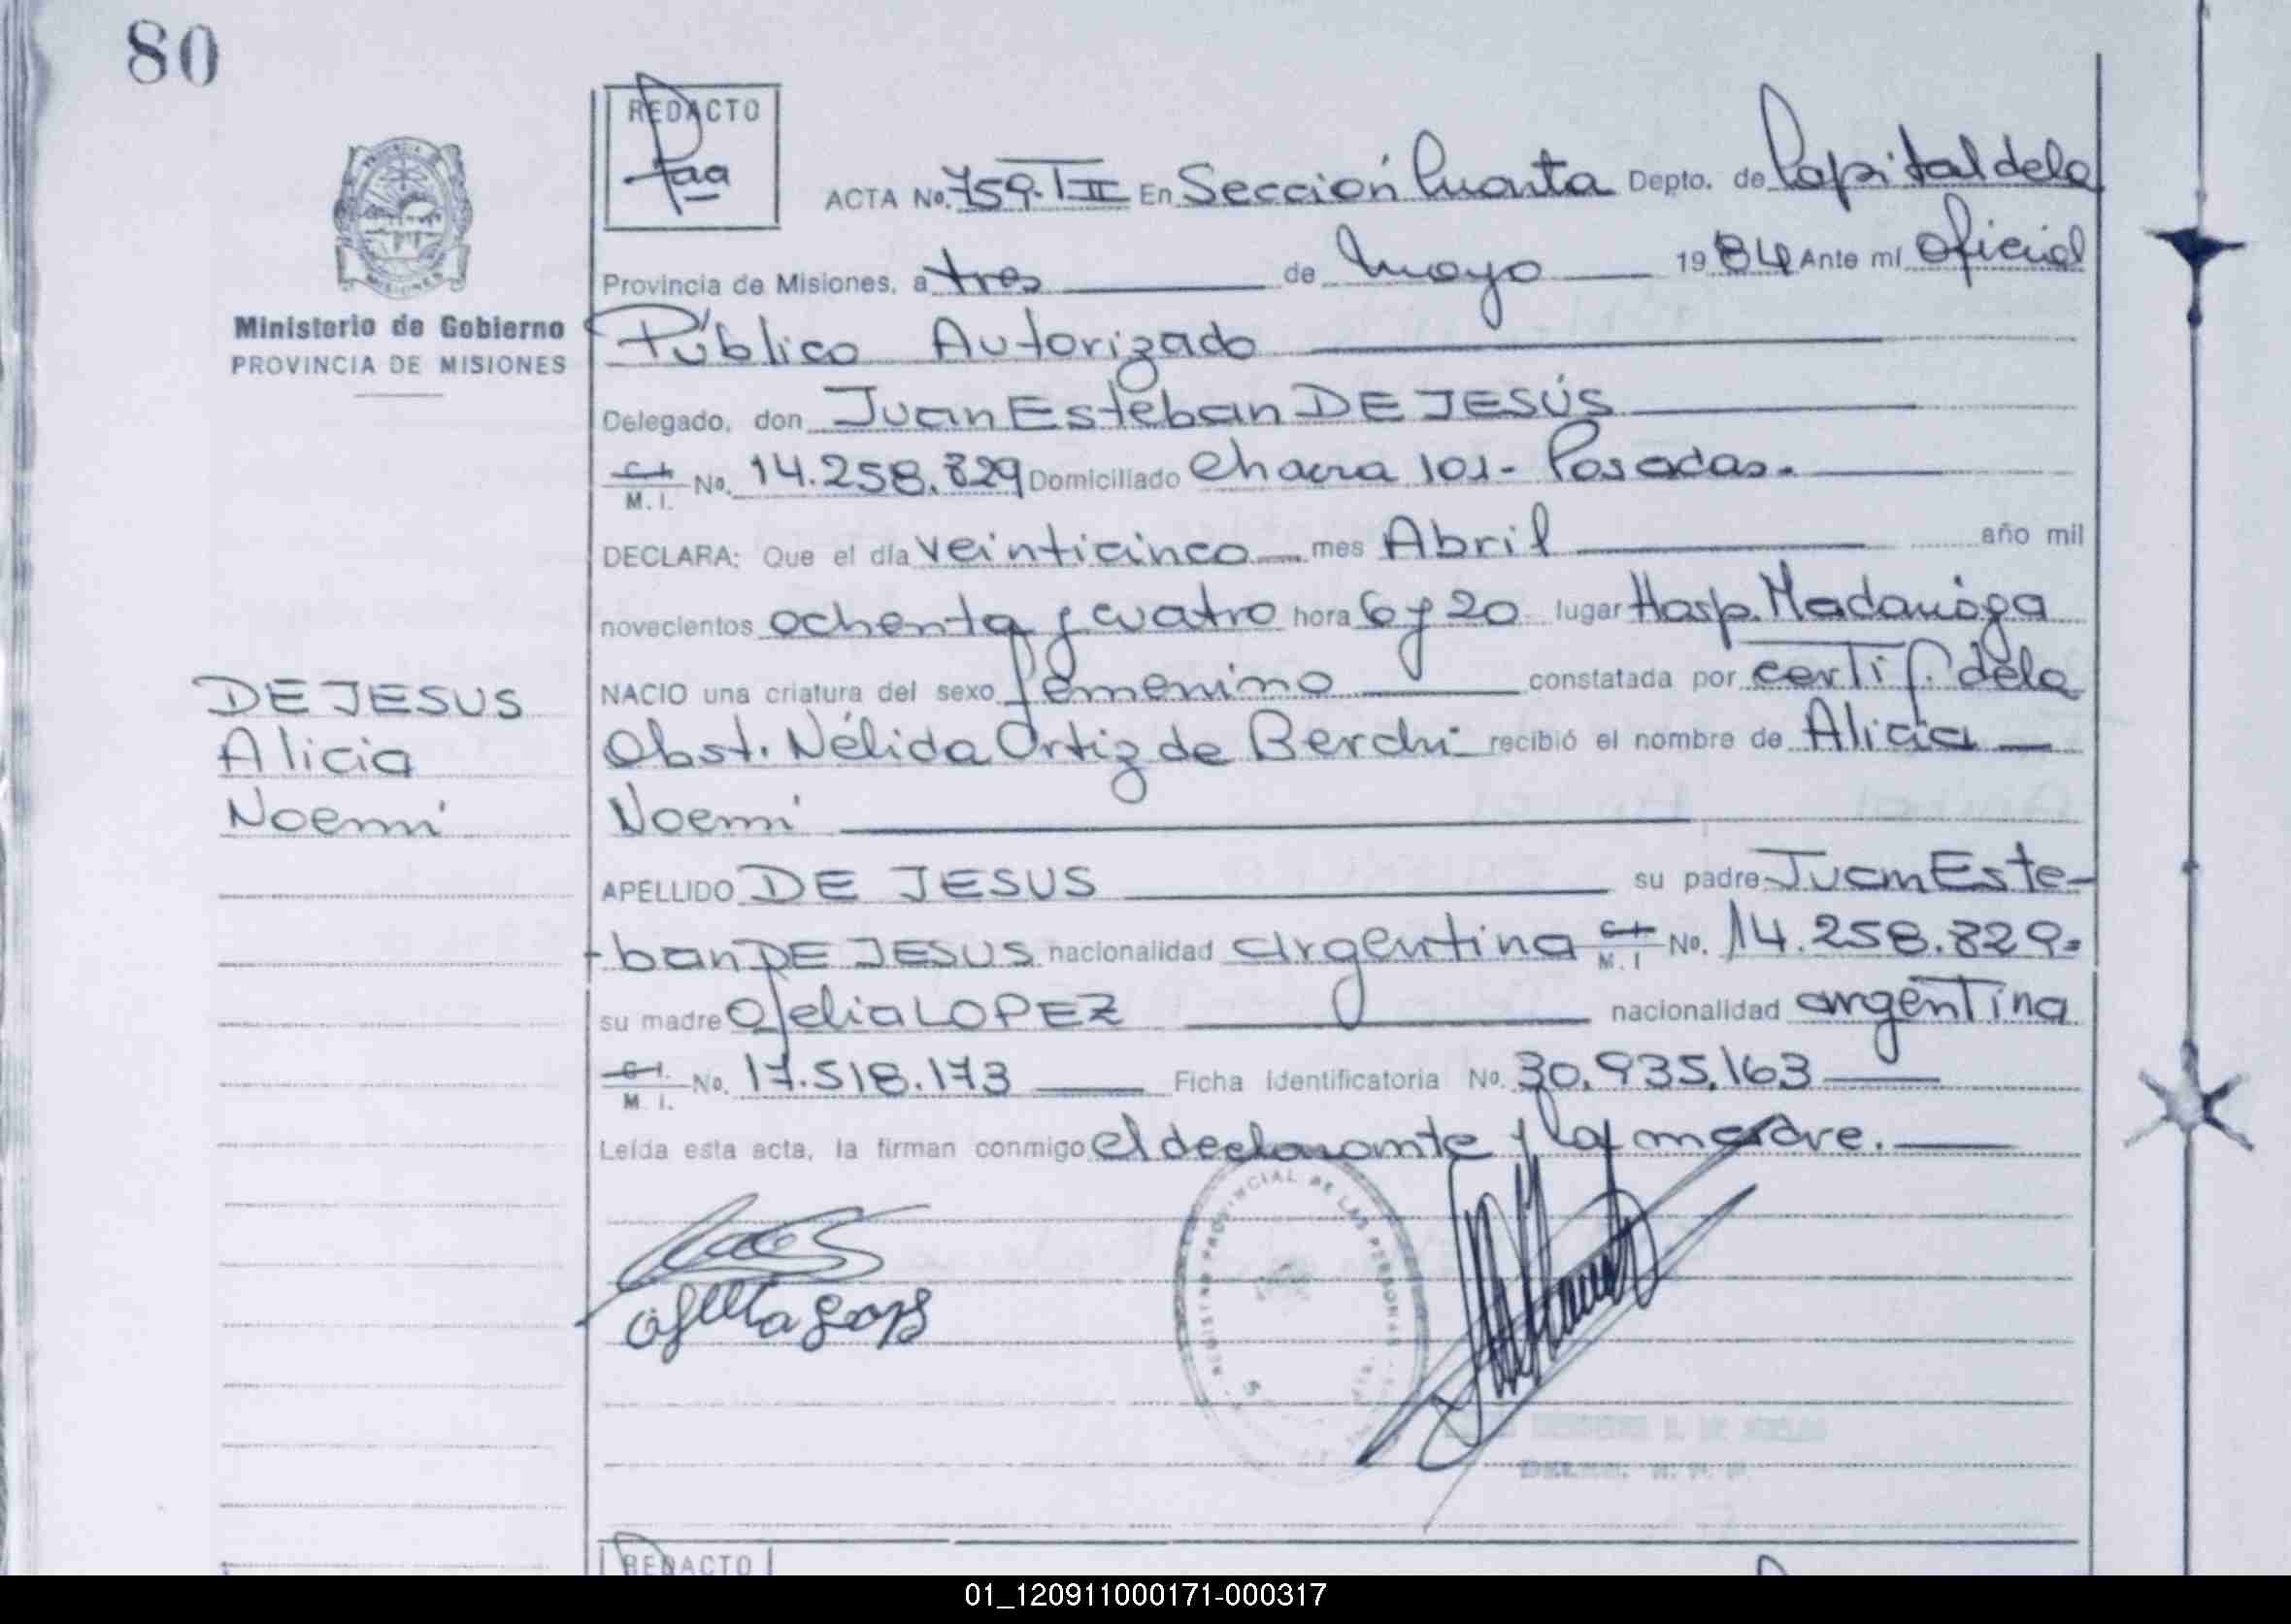 80
REDACTO
ACTA No. 759. T II En Sección Cuarta Depto. de Capital de la
Provincia de Misiones, a tres de mayo 1984 Ante mi Oficial
Ministerio de Gobierno
PROVINCIA DE MISIONES
Público Autorizado
Delegado, don Juan Esteban DE JESÚS
C.I. M.I. No. 14.258.829 Domiciliado Chacra 101- Posadas.
DECLARA: Que el día veinticinco mes Abril año mil
novecientos ochenta y cuatro hora 6 y 20 lugar Hosp. Madariaga
NACIO una criatura del sexo femenino constatada por certif. de la
Obst. Nélida Ortiz de Berchi recibió el nombre de Alicia
Noemí
DE JESUS
Alicia
Noemí
APELLIDO DE JESUS su padre Juan Este-
-ban DE JESUS nacionalidad argentina C.I. M.I No. 14.258.829.
su madre Ofelia LOPEZ nacionalidad argentina
C.I. M.I. No. 17.518.173 Ficha Identificatoria No. 30.935.163
Leída esta acta, la firman conmigo el declarante y la madre.
REGISTRO PROVINCIAL DE LAS PERSONAS
REDACTO
01_120911000171-000317